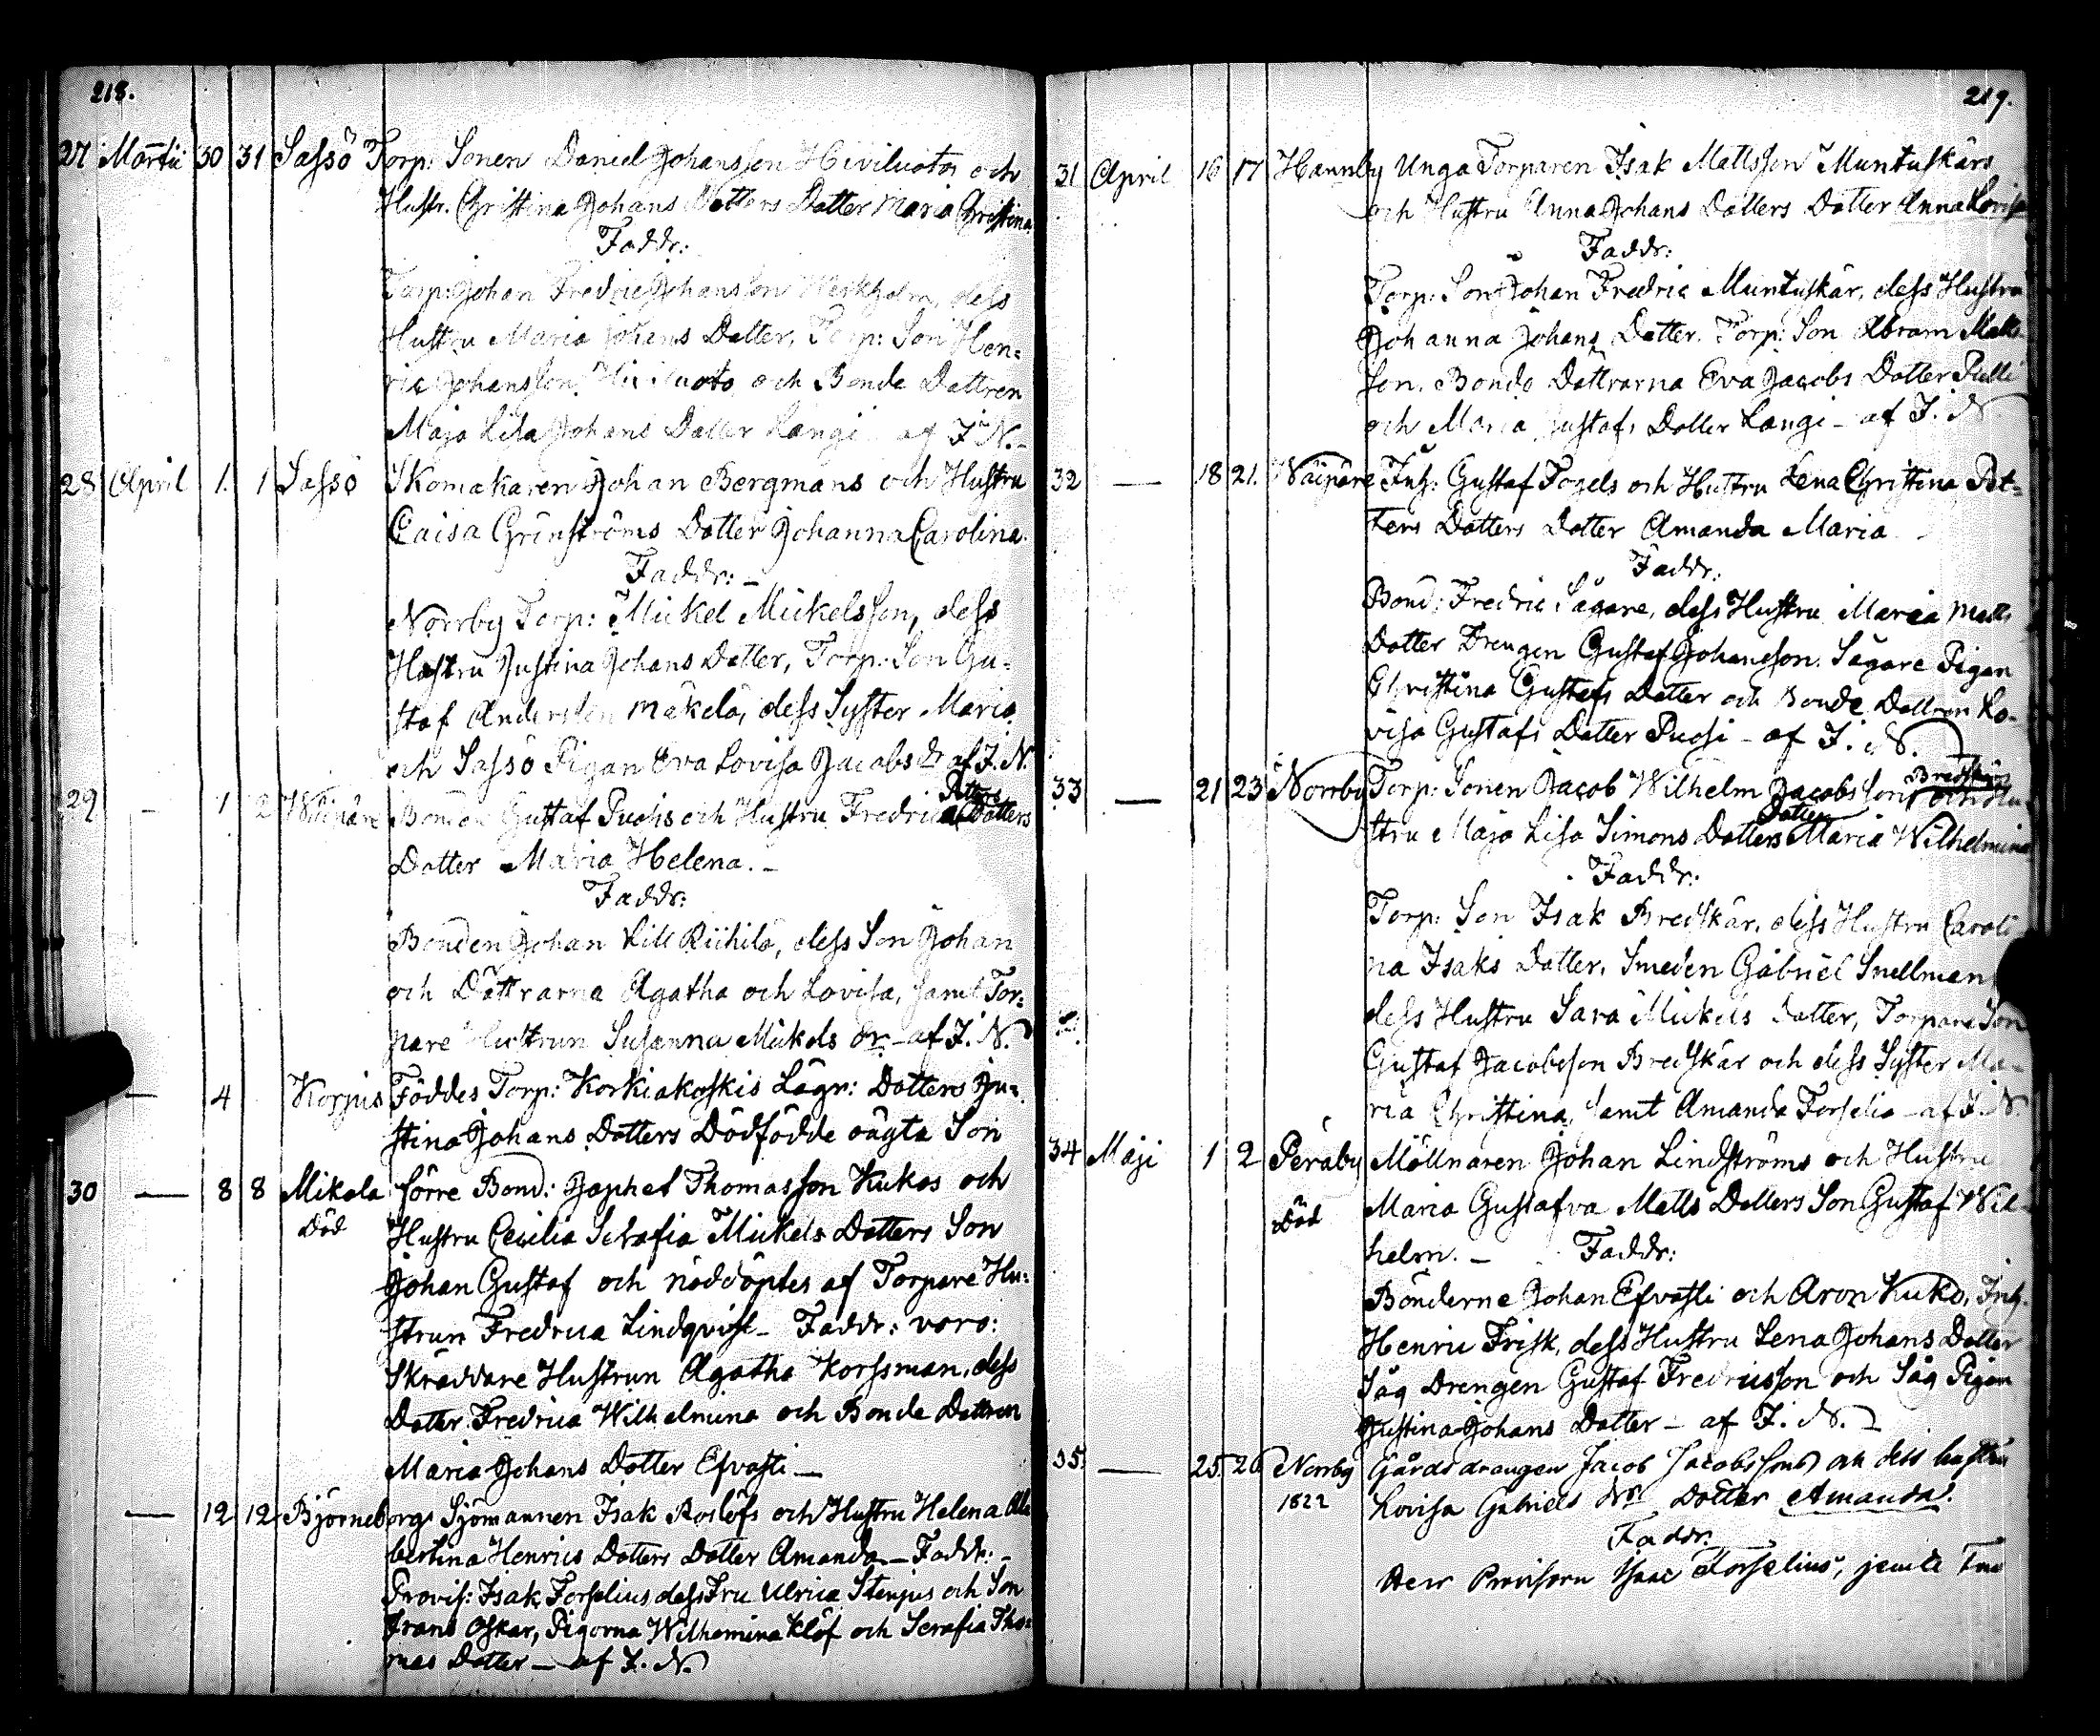 218.
27 Martii 30 31 Sassö Torp: Sonen Daniel Johansson Hiviluoto och
Hustr. Christina Johans Dotters Dotter Maria Christina.
Faddr:
Torp: Johan Fredric Johansson Heskholm, dess
Hustru Maria Johans Dotter, Torp: Son Hen=
ric Johansson Hiviluoto och Bonde Dottren
Maja Lisa Johans Dotter Langi af I. N.
28 April 1. 1 Sassö Skomakaren Johan Bergmans och Hustru
Caisa Grönströms Dotter Johanna Carolina.
Faddr: –
Norrby Torp: Mickel Mickelsson, dess
Hustru Justina Johans Dotter, Torp: Son Gu=
staf Andersson Mäkelä, dess Syster Maria
och Sassö Pigan Eva Lovisa Jacobs dr af I. N.
29 – 1 2 Wäipäre Bonden Gustaf Puosis och Hustru Fredrica Petters Dotters
Dotter Maria Helena. –
Faddr:
Bonden Johan Lill Riihilä, dess Son Johan
och Döttrarna Agatha och Lovisa, samt Tor=
pare Hustrun Susanna Mickels dr – af I. N.
— 4 Korpus Föddes Torp: Korkiakoskis Lägr: Dotters Ju=
stina Johans Dotters Dödfödde oägta Son
30 — 8 8 Mikola förre Bond: Japhet Thomasson Kukos och
Död Hustru Cecilia Serafia Mickels Dotters Son
Johan Gustaf och nöddöptes af Torpare Hu=
strun Fredrica Lindqvist – Faddr: voro:
Skräddare Hustrun Agatha Korssman, dess
Dotter Fredrica Wilhelmina och Bonde Dottren
Maria Johans Dotter Efvasti —
— 12 12 Björneborgs Sjömannen Isak Roslöfs och Hustru Helena Al
bertina Henrics Dotters Dotter Amanda – Faddr: –
Provis: Isak Forselius dess Fru Ulrica Stenjus och Son
Frans Oskar, Pigorna Wilhemina Klöf och Serafia Tho=
mas Dotter – af I. N.
219.
31 April 16 17 Hannby Unga Torparen Isak Mattsson Muntuskärs
och Hustru Anna Johans Dotters Dotter Anna Lovisa
Faddr:
Torp: Son Johan Fredric Muntuskär, dess Hustru
Johanna Johans Dotter. Torp: Son Abram Mats
son. Bonde Döttrarna Eva Jacobs Dotter Pulli
och Maria Gustafs Dotter Langi – af I. N.
32 — 18 21. Wäipäre Inh: Gustaf Fogels och Hustru Lena Christina Pet=
ters Dotters Dotter Amanda Maria –
Faddr:
Bond: Fredric Sägare, dess Hustru Maria Matts
Dotter Drengen Gustaf Johansson Sägare Pigan
Christina Gustafs Dotter och Bonde Dottren Lo-
visa Gustafs Dotter Puosi – af I. N.
33 — 21 23 Norrby Torp: Sonen Jacob Wilhelm Jacobssons Bredskär och Hu
stru Maja Lisa Simons Dotters Dotter Maria Wilhelmina
Faddr:
Torp: Son Isak Bredskär, dess Hustru Caroli
na Isaks Dotter, Smeden Gabriel Snellman
dess Hustru Sara Mickels Dotter, Torpare Son
Gustaf Jacobsson Bredskär och dess Syster Ma-
ria Christina, samt Amanda Forselia – af I. N.
34 Maji 1 2 Peräby Möllnaren Johan Lindströms och Hustru
Död Maria Gustafva Matts Dotters Son Gustaf Wil
helm. – Faddr:
Bönderne Johan Efvasti och Aron Kuko, Inh.
Henric Frisk, dess Hustru Lena Johans Dotter
Såg Drengen Gustaf Fredricsson och Såg Pigan
Justina Johans Dotter – af I. N.
35. — 25. 26 Norrby Gårds drängen Jacob Jacobssons och dess hustru
1822 Lovisa Gabriels drs Dotter Amanda.
Faddr.
Herr Provisorn Isaac Forselius, jemte Fru